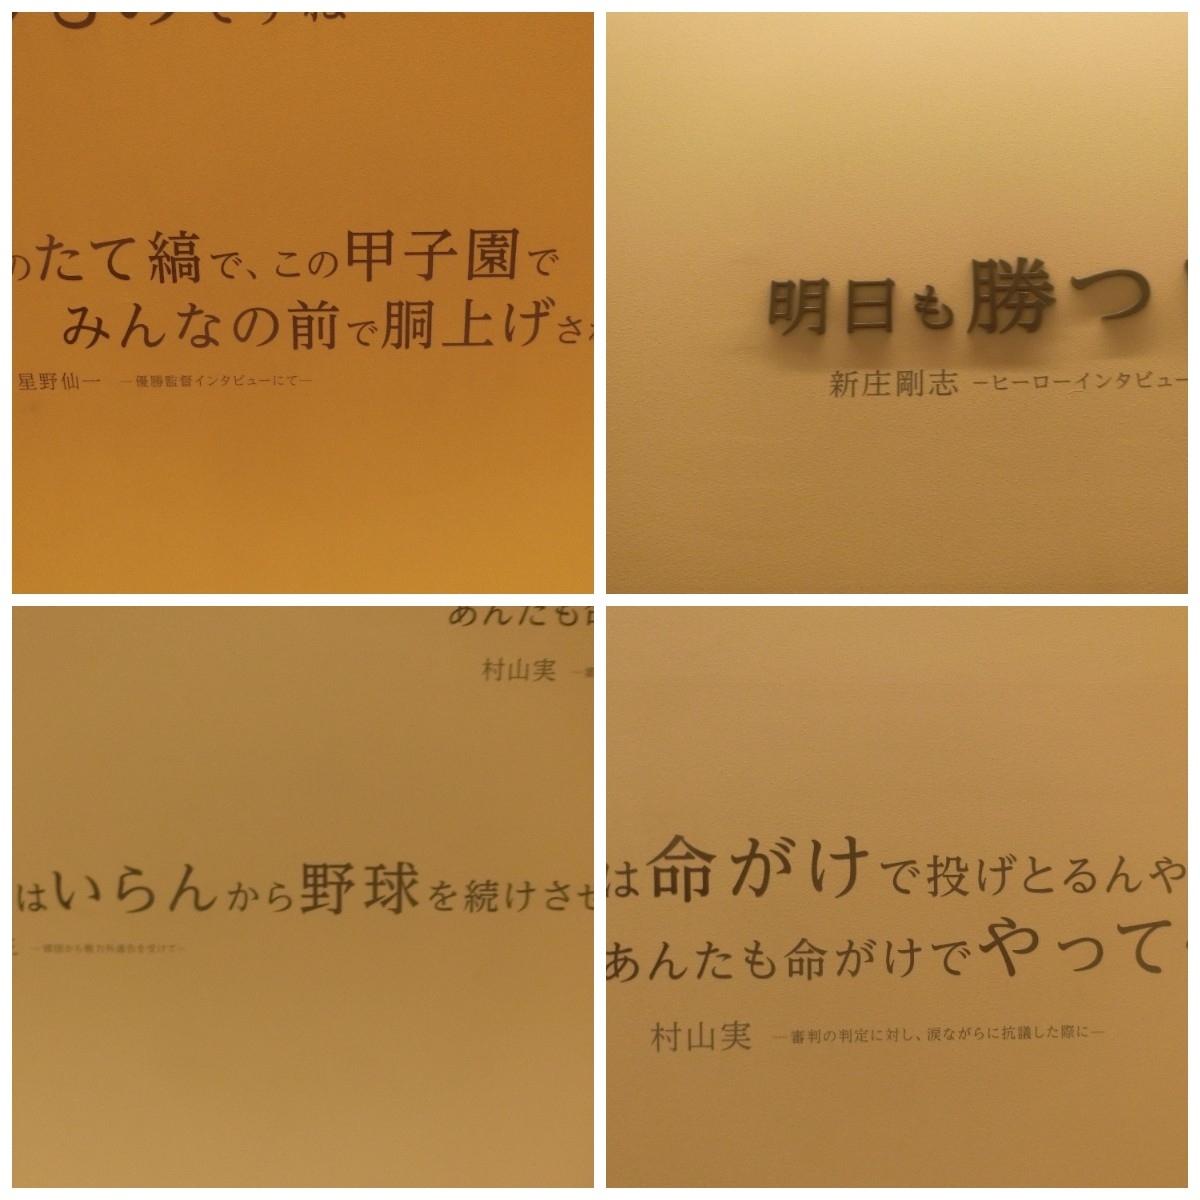 のたて縞で、この甲子園で
みんなの前で胴上げさ
星野仙一 ―優勝監督インタビューにて―
明日も勝つ
新庄剛志 ―ヒーローインタビュー
あんたも
村山実
はいらんから野球を続けさせ
は命がけで投げとるんや
あんたも命がけでやって
村山実 ―審判の判定に対し、涙ながらに抗議した際に―